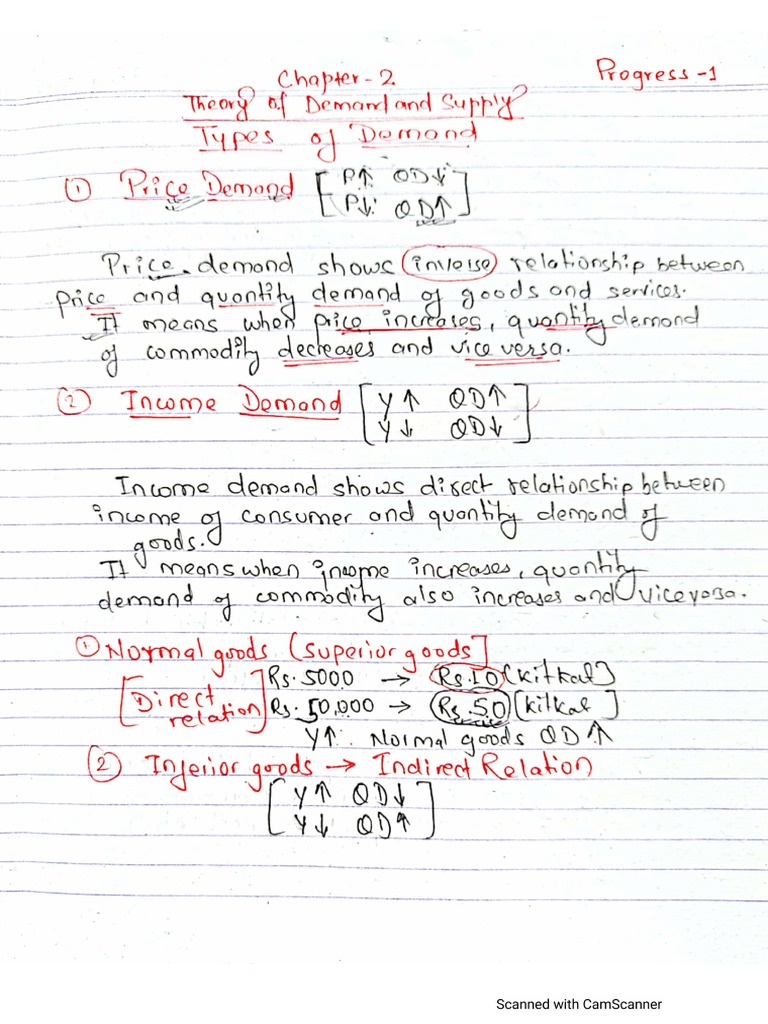 Chapter-2
Progress-1
Theory of Demand and Supply
Types of Demand
① Price Demand [P↑ QD↓
P↓ QD↑]
Price demand shows inverse relationship between
price and quantity demand of goods and services.
It means when price increases, quantity demand
of commodity decreases and vice versa.
② Income Demand [Y↑ QD↑
Y↓ QD↓]
Income demand shows direct relationship between
income of consumer and quantity demand of
goods.
It means when income increases, quantity
demand of commodity also increases and vice versa.
① Normal goods (superior goods]
[Direct relation] Rs. 5000 → Rs. 10 (kitkat)
Rs. 50,000 → Rs. 50 (kitkat]
Y↑ Normal goods QD↑
② Inferior goods → Indirect Relation
[Y↑ QD↓
Y↓ QD↑]
Scanned with CamScanner